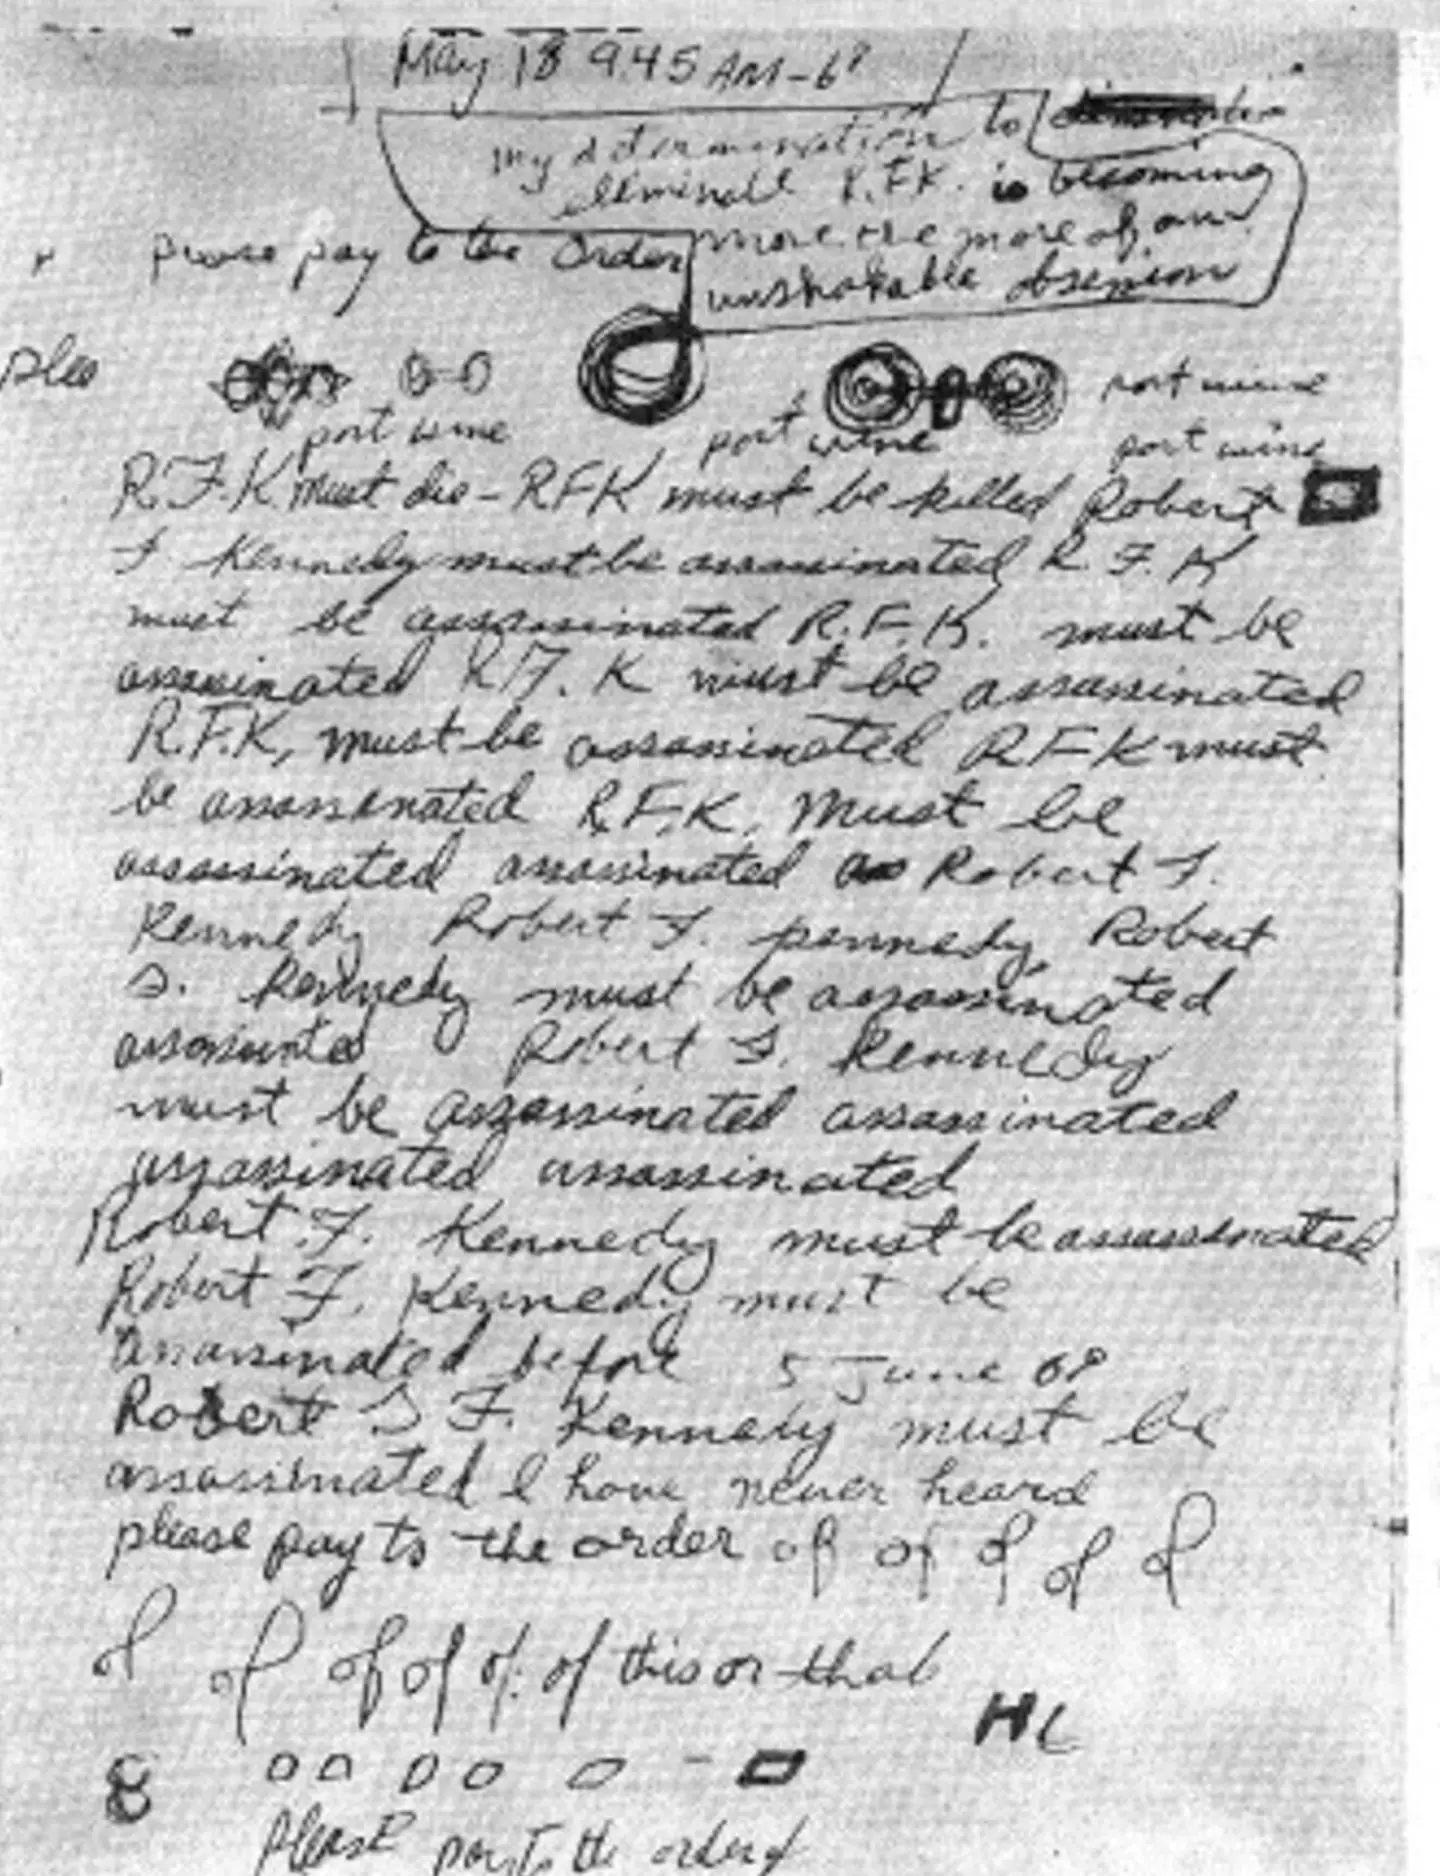 May 18 9.45 AM-68
my determination to
eliminate R.F.K. is becoming
please pay to the order more the more of an
unshakable obsession
plea
port wine
port wine port wine port wine
R.F.K must die - RFK must be killed Robert
F. Kennedy must be assassinated R. F. K
must be assassinated R.F.K. must be
assassinated R.F.K must be assassinated
R.F.K, must be assassinated RFK must
be assassinated R.F.K. Must be
assassinated assassinated Robert F.
Kennedy Robert F. pennedy Robert
F. Kennedy must be assassinated
Robert F. Kennedy
must be assassinated assassinated
assassinated assassinated
Robert F. Kennedy must be assassinated
Robert F. Kennedy must be
assassinated before 5 June 68
Robert F. Kennedy must be
assassinated I have never heard
please pay to the order of of of of of
of of of of of of this or that
8 0 0 0 0 0 -
please pay to the order of